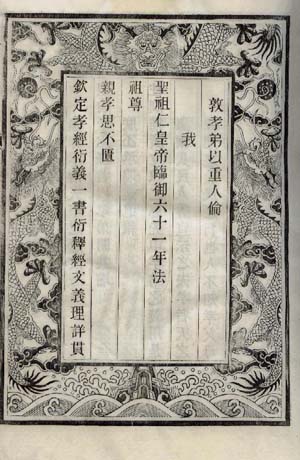 敦孝弟以重人倫
我
聖祖仁皇帝臨御六十一年法
祖尊
親孝思不匱
欽定孝經衍義一書衍釋經文義理詳貫